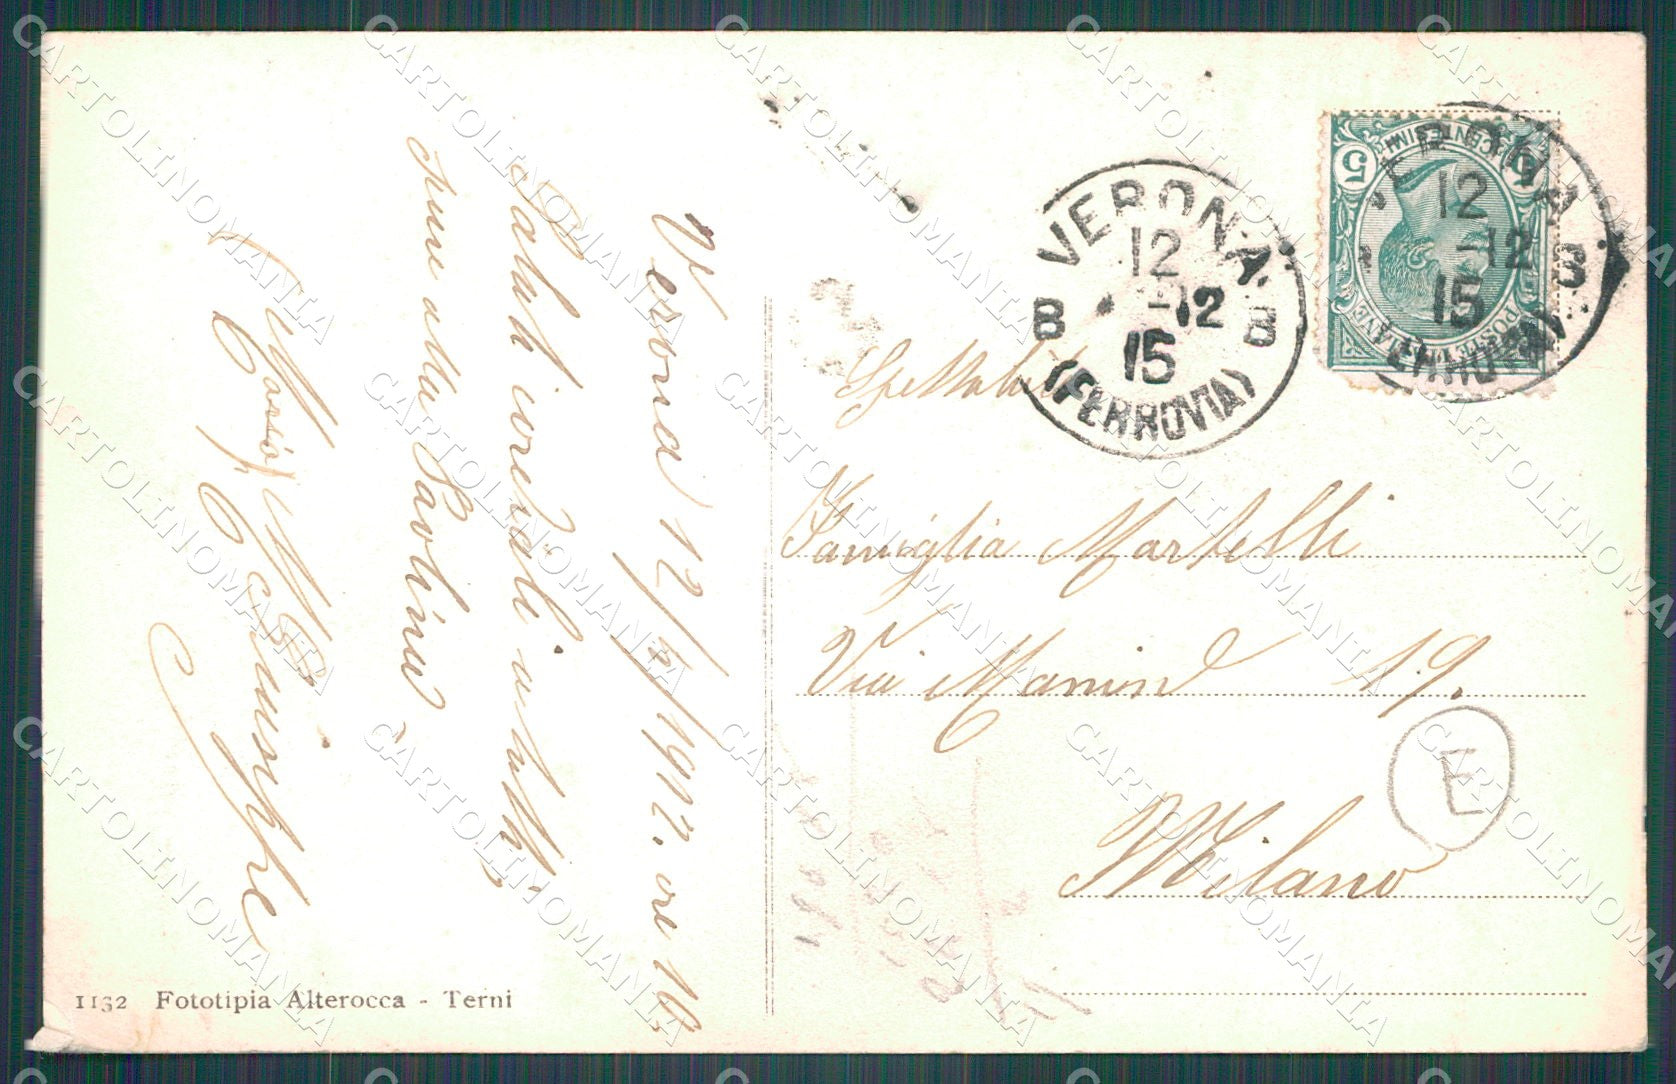 Verona 12/2/1912. ore 16
Saluti cordiali a tutti,
pure alla Paolina
Giuseppe
1132 Fototipia Alterocca - Terni
VERONA
12
-12
15
B B
(FERROVIA)
5 CENTESIMI 5
POSTE ITALIANE
VERONA
12
-12
15
B
(FERROVIA)
Spettabile
Famiglia Martelli
Via Manin 19.
Milano
E
CARTOLINOMANIA